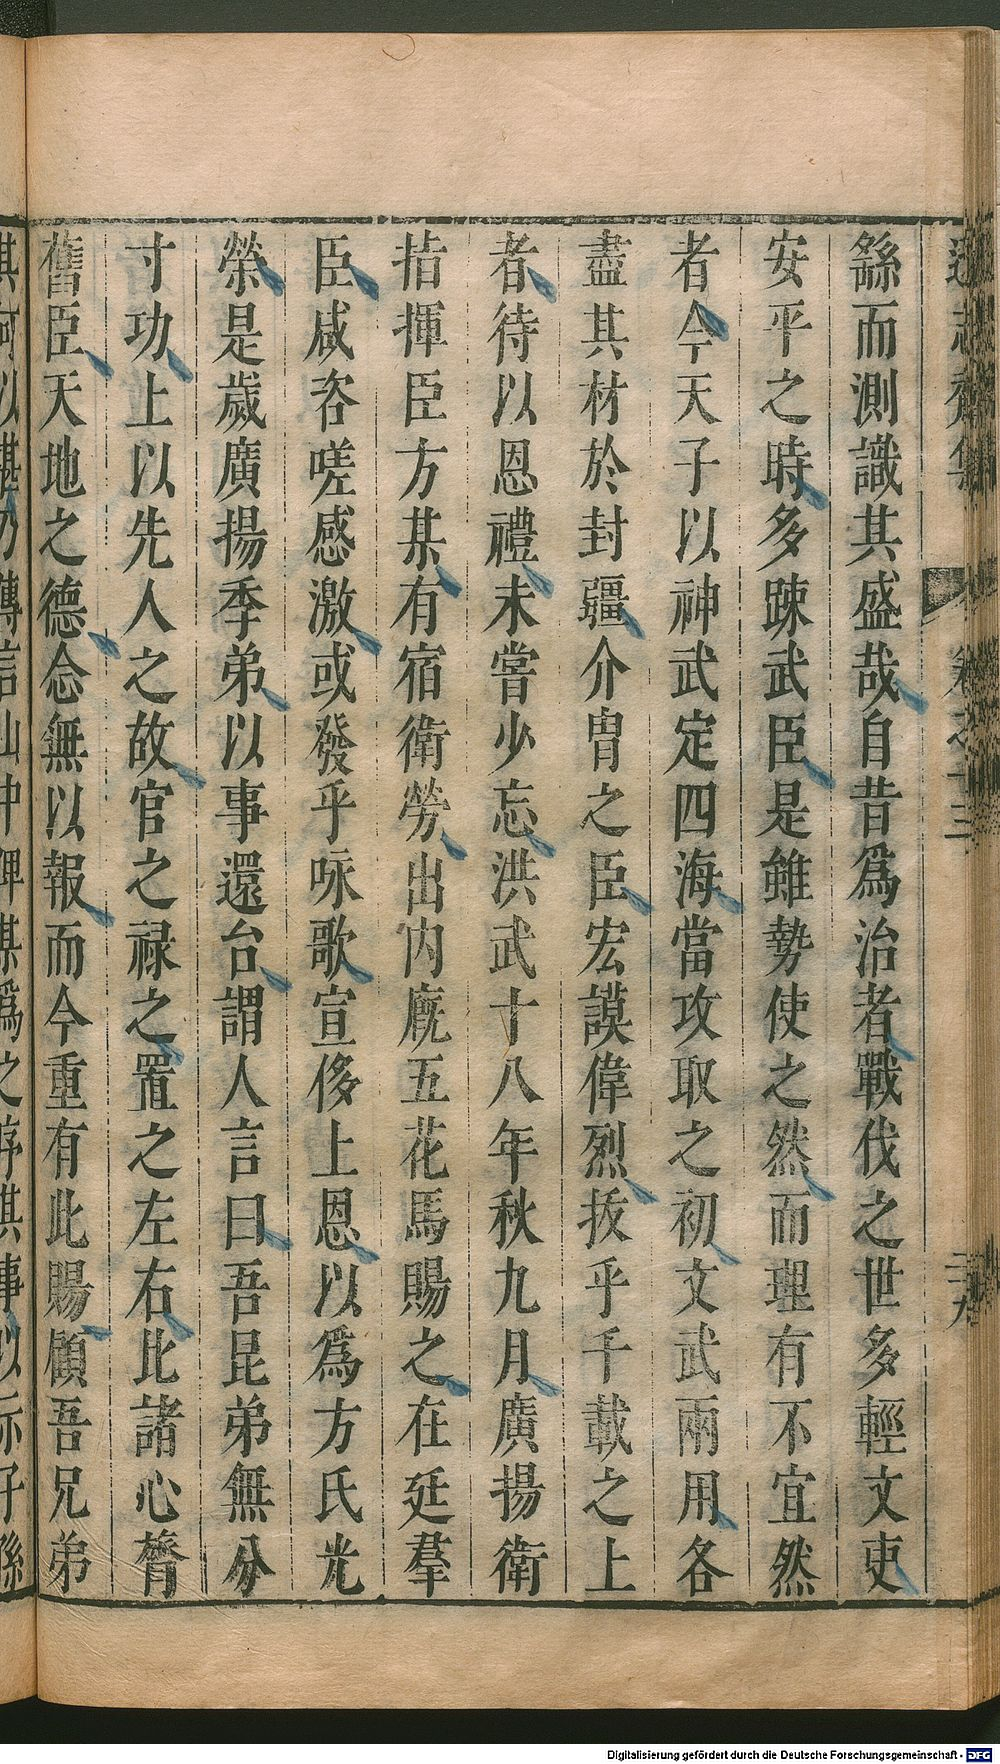 遜志齋集 卷之十三 三九
繇而測識其盛哉自昔爲治者戰伐之世多輕文吏
安平之時多踈武臣是雖勢使之然而理有不宜然
者今天子以神武定四海當攻取之初文武兩用各
盡其材於封疆介胄之臣宏謨偉烈拔乎千載之上
者待以恩禮未嘗少忘洪武十八年秋九月廣揚衛
指揮臣方某有宿衛勞出内廐五花馬賜之在廷羣
臣咸咨嗟感激或發乎咏歌宣侈上恩以爲方氏光
榮是歲廣揚季弟以事還台謂人言曰吾昆弟無分
寸功上以先人之故官之祿之置之左右比諸心膂
舊臣天地之德念無以報而今重有此賜顧吾兄弟
其何以堪乃傳言山中俾某爲之序其事以示子孫
Digitalisierung gefördert durch die Deutsche Forschungsgemeinschaft - DFG